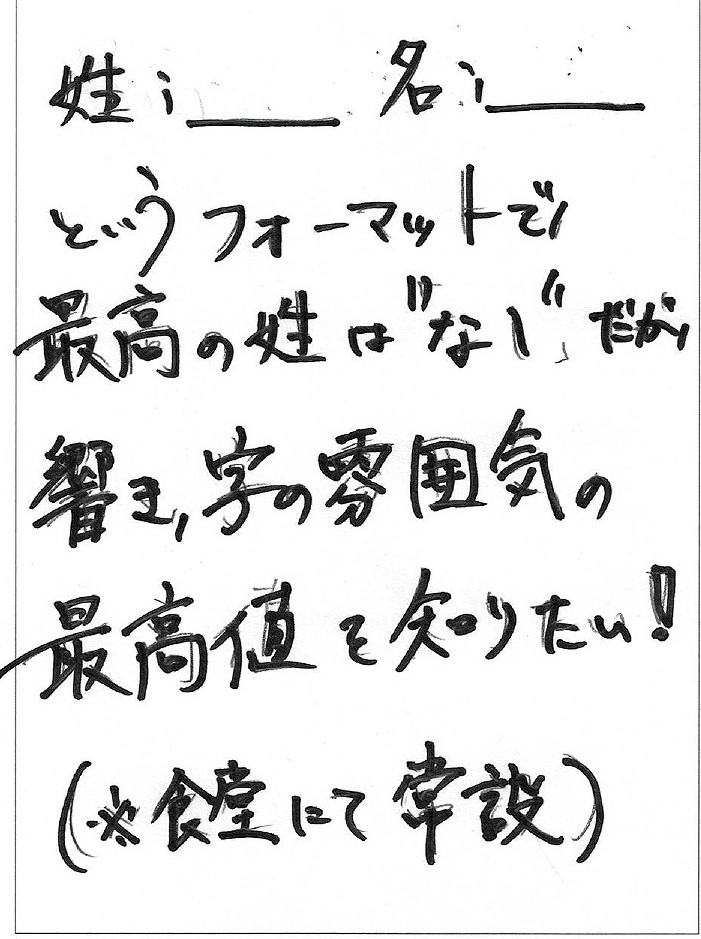 姓：＿＿＿ 名：＿＿＿
というフォーマットで、
最高の姓は"なし"だが、
響き、字の雰囲気の
最高値を知りたい！
(※食堂にて常設)